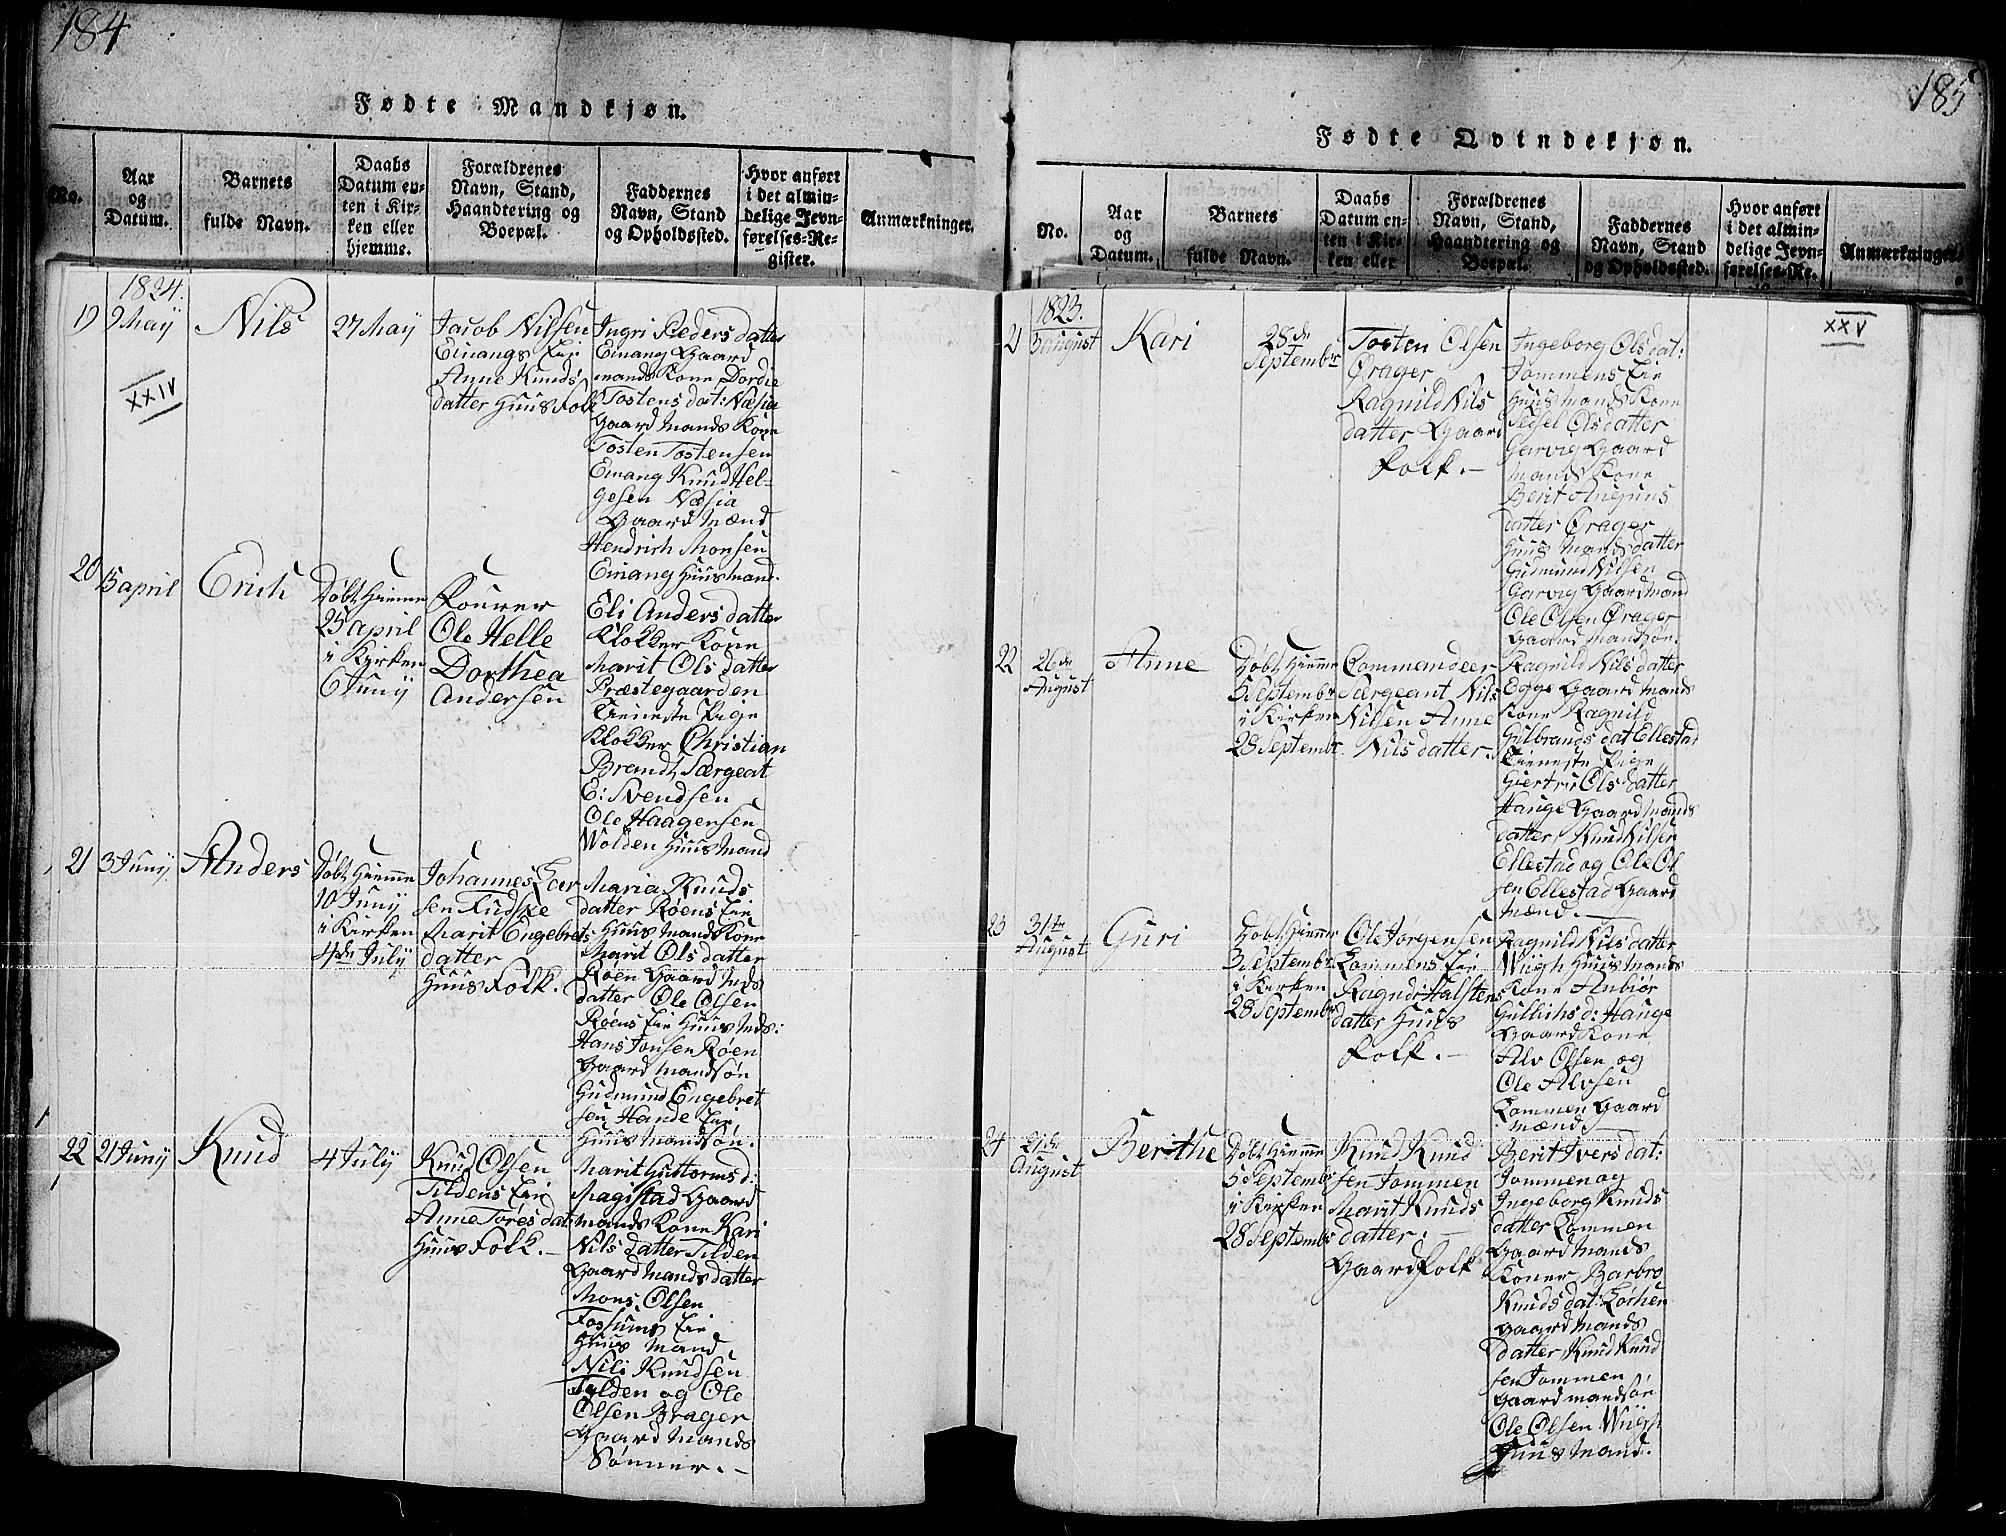 184
Fødte Mandkjøn.
No.
Aar
og
Datum.
Barnets
fulde Navn.
Daabs
Datum en-
ten i Kir-
ken eller
hjemme.
Forældrenes
Navn, Stand,
Haandtering og
Boepæl.
Faddernes
Navn, Stand
og Opholdssted.
Hvor anført
i det almin-
delige Jevn-
førelses-Re-
gister.
Anmærkninger.
1824.
19
9 Maÿ
XXIV
Nils
27 Maÿ
Jacob Nilsen
Einangs Eie
Anne Knuds
datter Huus Folk
Ingri Peders datter
Einang Gaard
mands Kone Dordie
Tostens dat: Næsia
Gaard Mands Kone
Tosten Tostensen
Einang Knud Hel-
gesen Næsia
Gaard Mænd
Hendrich Monsen
Einang Huusmand.
20
15 april
Erich
Døbt Hiemme
25 april
i Kirken
6 Junÿ
Fourer
Ole Helle
Dorthea
Andersen
Eli Anders datter
Klokker Kone
Marit Ols datter
Præstegaarden
Tieneste Pige
Klokker Christian
Brandt Særgeat
E: Svendsen
Ole Haagensen
Wolden Huus Mand
21
3 Junÿ
Anders
Døbt Hiemme
10 Junÿ
i Kirken
4de Julÿ
Johannes Lar
sen Fudske
Marit Engebrets
datter
Huus Folk.
Maria Knuds
datter Røens Eie
Huus Mands Kone
Marit Ols datter
Røen Gaard Mds
datter Ole Olsen
Røens Eie Huus Mds:
Hans Jonsen Røen
Gaard mandsøn
Gudmund Engebret
sen Hande Eie
Huus Mandsøn.
22
21 Junÿ
Knud
4 Julÿ
Knud Olsen
Tildens Eie
Anne Tores dat
Huus Folk.
Marit Guttormsd:
Magistad Gaard
mands Kone Kari
Nils datter Tilden
Gaard Mands datter
Mons Olsen
Fossums Eie
Huus Mand
Nili Knudsen
Tylden og Ole
Olsen Brager
Gaard Mands
Sønner.
185
Fødte Qvindekjøn.
No.
Aar
og
Datum.
Barnets
fulde Navn.
Daabs
Datum en-
ten i Kir-
ken eller
Forældrenes
Navn, Stand,
Haandtering og
Boepæl.
Faddernes
Navn, Stand
og Opholdssted.
Hvor anført
i det almin-
delige Jevn-
førelses-Re-
Anmærkninger.
1823.
21
3 August
Kari
28de
September
Tosten Olsen
Ørager
Ragnild Nils
datter Gaard
Folk.
Ingeborg Olsdat:
Jommens Eie
Huus Mands Kone
Sidsel Olsdatter
Garvig Gaard
mands Kone
Berit Anguns
datter Ørager
Huus Mandsdatter
Gudmund Nilsen
Garvig Gaardmand
Ole Olsen Ørager
Gaard Mandsøn.
XXV
22
26de
August
Anne
Døbt Hiemme
5 September
i Kirken
28 Septembr.
Commandeer
Særgeant Nils
Nilsen Anne
Nils datter.
Ragnild Nils datter
Egge Gaard Mands
Kone Ragnild
Gulbrands dat Ellestad
Tieneste Pige
Giertru Ols datter
Hauge Gaard Mands
datter Knud Nilsen
Ellestad og Ole Ol
sen Ellestad Gaard
Mænd.
23
31te
August
Guri
Døbt Hiemme
3 Septembr
i Kirken
28 September
Ole Jørgensen
Lommens Eie
Ragndi Halstens
datter Huus
Folk.
Ragnild Nils datter
Wiigh Huus Mands
Kone Anbiør
Gullichs d: Hauge
Gaard Kone
Alv Olsen og
Ole Alvsen
Lommen Gaard
mænd
24
21de
August
Berithe
Døbt Hiemme
5 Septembr
i Kirken
28 Septembr
Knud Knud
sen Jommen
Marit Knuds
datter:
Gaard Folk
Berit Ivers dat:
Jommen og
Ingeborg Knuds
datter Lommen
Gaard Mands
Koner Barbro
Knuds dat: Lørhen
Gaard Mands
datter Knud Knud
sen Jommen
Gaard mandsøn
Ole Olsen Wiigh
Huus Mand.